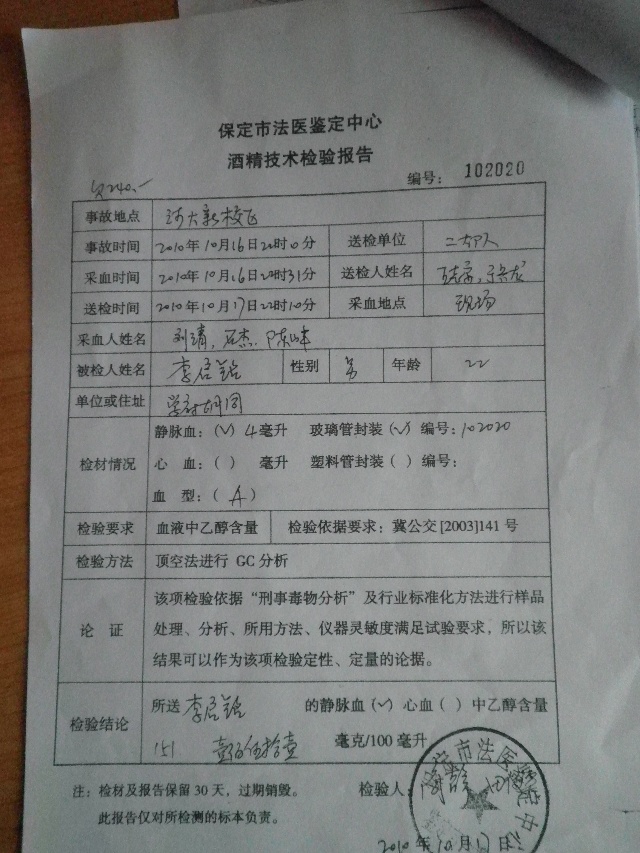 保定市法医鉴定中心
酒精技术检验报告
编号： 102020
事故地点 河大新校区
事故时间 2010年10月16日 时10分 送检单位 二大队
采血时间 2010年10月16日 时31分 送检人姓名
送检时间 2010年10月17日 时10分 采血地点 现场
采血人姓名 刘靖，石杰，陈峰
被检人姓名 李启铭 性别 男 年龄 22
单位或住址 胡同
检材情况 静脉血：（✓）4毫升 玻璃管封装（✓）编号：102020
心 血：（ ） 毫升 塑料管封装（ ）编号：
血 型：（ A ）
检验要求 血液中乙醇含量 检验依据要求：冀公交[2003]141号
检验方法 顶空法进行 GC 分析
论 证 该项检验依据“刑事毒物分析”及行业标准化方法进行样品
处理、分析、所用方法、仪器灵敏度满足试验要求，所以该
结果可以作为该项检验定性、定量的论据。
检验结论 所送 李启铭 的静脉血（✓）心血（ ）中乙醇含量
151 壹佰伍拾壹 毫克/100毫升
注：检材及报告保留30天，过期销毁。 检验人：
此报告仅对所检测的标本负责。
2010年10月17日